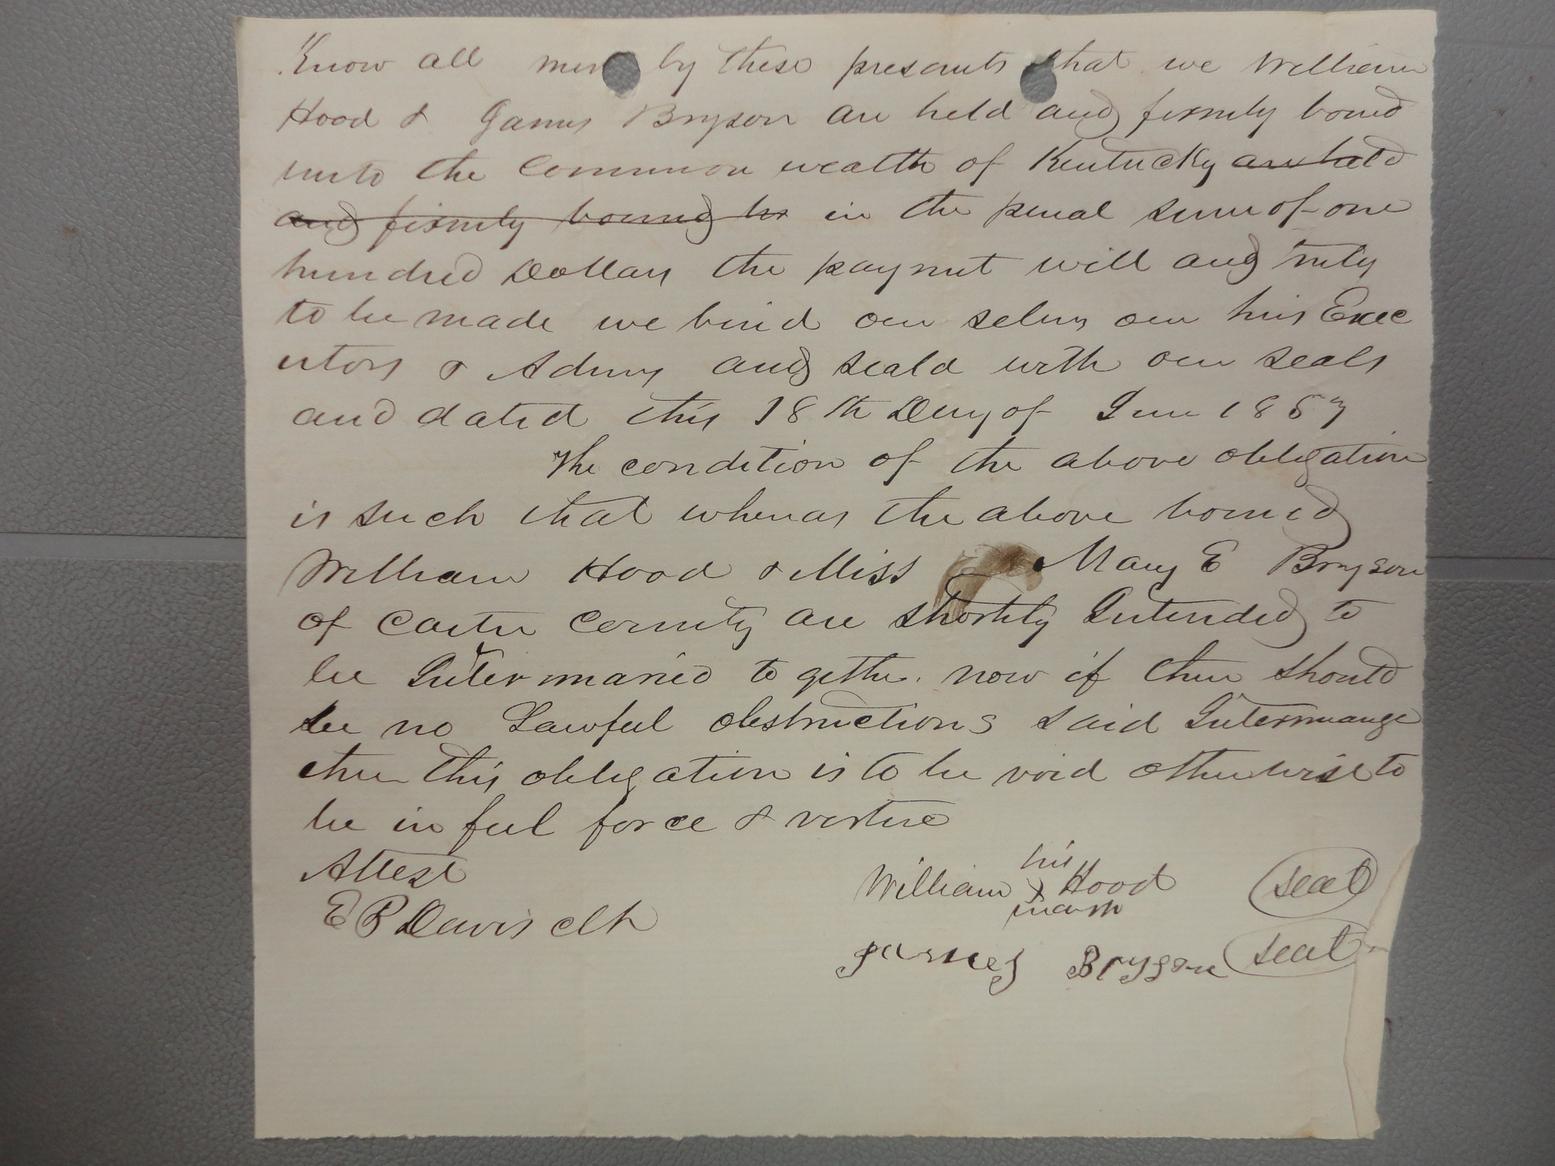 Know all men by these presents that we William
Hood & James Bryson are held and firmly bound
unto the Common wealth of Kentucky are held
and firmly bound to in the penal sum of one
hundred Dollars the paymnt will and truly
to be made we bind our selves our hirs Exec
utors & Admrs and seald with our seals
and dated this 18th Day of June 1867
The condition of the above obligation
is such that whereas the above bound
William Hood & Miss Mary E Bryson
of Carter County are shortly Intended to
be Intermarried to gether. now if there should
be no Lawful obstructions said Intermarrage
then this obligation is to be void otherwise to
be in full force & vertue
Attest
E P Davis clk
William his X mark Hood seal
James Bryson seal